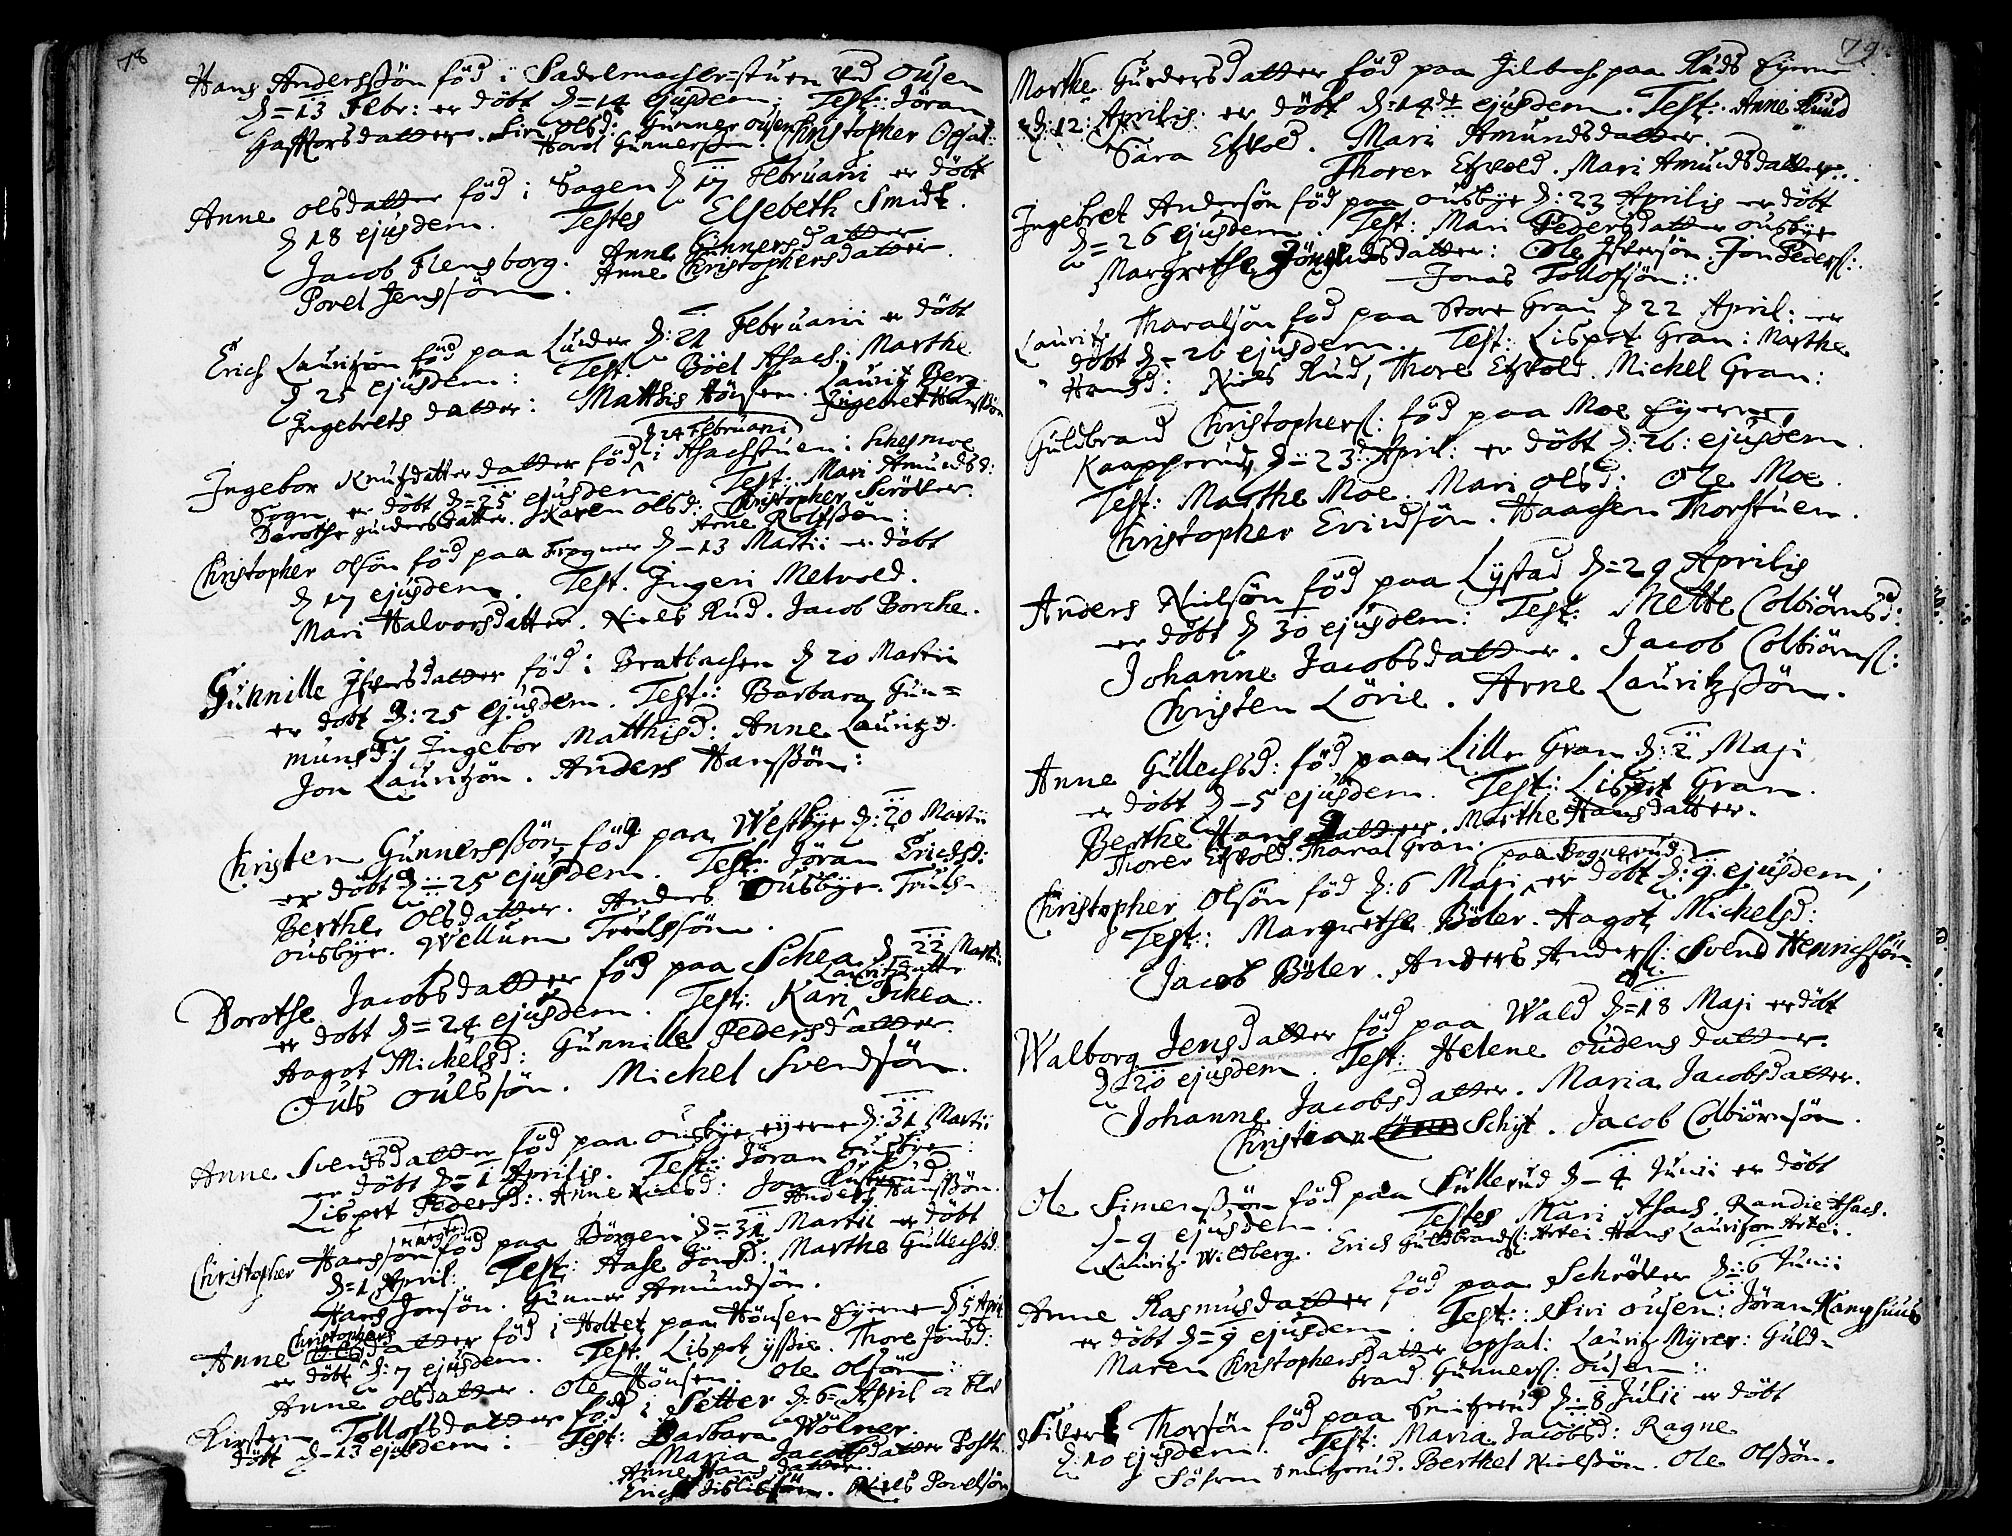 78
Hans Andersßøn fød i Sadelmacher=stuen ved Ousen
d=13 Febr: er døbt d=14 ejusdem; Test: Jøran
Haffvorsdatter. Siri olsd: Gunner ousen Christopher Opsal:
Havor Gunnerßen.
Anne olsdatter fød i Sagen d 17 Februarii er døbt
d 18 ejusdem. Testes Elsebeth Smidt.
Jacob Flensborg. Anne Gunnersdatter
Povel Jenssøn. Anne Christophersdatter.
Erich Lauritzøn fød paa Lunder d: 21 Februarii er døbt
d 25 ejusdem: Test: Böel Asach: Marthe
Ingebrets datter: Matthis Hønsen. Lauritz Berg
Ingebret Hanßøn
d 24 Februarii
Ingebor Knutzdatter fød i Asachstuen i Schesmoe
Sogn er døbt d=25 ejusdem. Test: Mari Amundsd:
Dorothe gundersdatter. Karen olsd: Christopher Scrøver.
Arne Rolfßøn:
Christopher olsøn fød paa Frogner d-13 Martii er døbt
d 17 ejusdem. Test. Ingeri Metvold.
Mari Halvorsdatter. Niels Rud. Jacob Borche.
Gunnille Ifversdatter fød i Bratbachen d 20 Martii
er døbt d: 25 ejusdem. Test: Barbara Gun=
mundsd: Ingebor Matthisd: Anne Lauritzd.
Jon Lauritzøn. Anders Hansßøn:
Christen Gunnersßøn fød paa Westbye d: 20 Martii
er døbt d=25 ejusdem. Test: Jøran Erichsd:
Berthe Olsdatter. Anders Ousbye. Truls-
ousbye. Wellum Trulssøn.
Dorothe Jacobsdatter fød paa Schea d 22 Martii
Lauritzdatter
er døbt d=24 ejusdem. Test: Kari Schea.
Aagot Michelsd: Gunnille Pedersdatter.
Ouls oulssøn. Michel Svendsøn.
Anne Svensdatter fød paa ousbye eyerne d: 31 Martii
er døbt d=1 Aprilis. Test: Jøran ousbye:
Lispet Pedersd: Anne Nielsd: Jon Rusterud
Anders Hansßøn.
Christopher Hanssøn fød paa Børgen d=31 Martii er døbt
d=1 April: Test: Aase Jønsd: Marthe Gullechsd:
Hans Jonsøn. Gunner Amundsøn.
Christophers
Anne datter fød i Holtet paa Hønsen Eyerne d 5 April
er døbt d: 7 ejusdem. Test: Lispet ysßie. Thore Jonsd:
Anne olsdatter. Ole Hønsen. Ole Olsøn:
Kirsten Tollofsdatter fød i Setter d: 6= April
døbt d-13 ejusdem: Test: Barbara Wølner.
Maria Jacobsdatter
Anne Hans datter.
Niels Povelsøn
79.
Marthe Gundersdatter fød paa paa Ruds Eyerne
d: 12: Aprilis er døbt d: 14de ejusdem. Test: Anne Rud
Sara Etzvold. Mari Amundsdatter.
Thorer Etzvold. Mari Amundsdatter..
Ingebret Andersøn fød paa ousbye d: 23 Aprilis er døbt
d=26 ejusdem. Test: Mari Pedersdatter ousbye
Margrethe datter: Ole Ifversøn. Jon Peders:
Jonas Tollofsøn::
Lauritz Tharalsøn fød paa Store Gran d 22 April: er
døbt d=26 ejusdem. Test: Lispet Gran: Marthe
Hansd: Niels Rud, Thore Etzvold. Michel Gran:
Guldbrand Christophers: fød paa Moe Eyerne,
Kaapperud, d=23 April: er døbt d: 26: ejusdem.
Test: Marthe Moe. Mari olsd: Ole Moe.
Christopher Evindsøn. Haachen Thorstuen.
Anders Nielsøn fød paa Lystad d=29 Aprilis
er døbt d 30 ejusdem: Test: Mette Colbiørnsd:
Johanne Jacobsdatter. Jacob Colbiørns:
Christen Lørie. Arne Lauritzßøn.
Anne Gullechsd: fød paa Lille Gran d: 2 Maji
er døbt d-5 ejusdem. Test: Lispet Gran.
Berthe Hans datter. Marthe Hansdatter.
Thorer Etzvold. Tharal Gran.
paa Bognerud:
Christopher Olsøn fød d: 6 Maji er døbt d: 9 ejusdem;
Test: Margrethe Bøler. Aagot Michelsd:
Jacob Bøler. Anders Anders: Svend Henrichsøn.
Walborg Jensdatter fød paa Wald d=18 Maji er døbt
d 20 ejusdem. Test: Helene oudens datter.
Johanne Jacobsdatter. Maria Jacobsdatter.
Christian Schyt. Jacob Colbiørnsøn.
Ole Simensßøn fød paa Sullerud d-4 Junii er døbt
d-9 ejusdem. Testes Mari Asach. Randie Asach.
Lauritz Wildberg. Erich Guldbrands: Artei. Hans Lauritzon Artei.
Anne Rasmusdatter fød paa Schrøver d: 6 Junii
er døbt d=9 ejusdem. Test: Siri ousen: Jøran Kanghuus
Maren Christophersdatter opsal: Lauritz Myrer: Guld-
brand Gunners: ousen:
Sivert Thorsøn fød paa Smitzrud d=8 Julii er døbt
d: 10 ejusdem. Test: Maria Jacobsd: Ragne
Smitzerud. Berthel Nielsßøn. Ole Olsßøn.